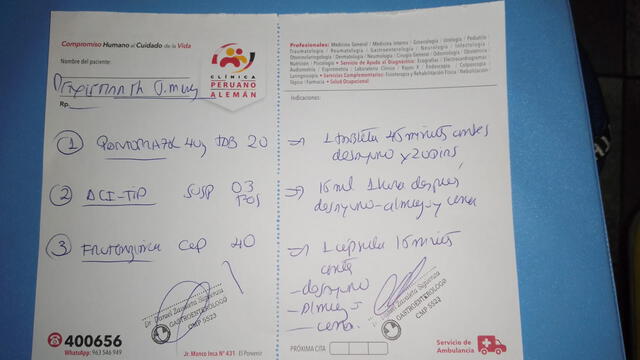 Compromiso Humano al Cuidado de la Vida
Nombre del paciente:
CLÍNICA
PERUANO
ALEMÁN
Rp.
1 40 TAB 20
2 ACI-TIP SUSP 03
FCOS
3 CAP 40
Dr. Daniel Zavaleta
GASTROENTEROLOGO
CMP 5523
400656
WhatsApp: 963 546 949
Jr. Manco Inca N° 431 El Porvenir
Profesionales: Medicina General / Medicina Interna / Ginecología / Urología / Pediatría
Traumatología / Reumatología / Gastroenterología / Neurología / Infectología
Otorrinolaringología / Dermatología / Neumología / Cirugía General / Odontología / Obstetricia
Nutrición / Psicología • Servicio de Ayuda al Diagnóstico: Ecografías / Electrocardiogramas
Audiometría / Espirometría / Laboratorio Clínico / Rayos X / Endoscopía / Colposcopía
Laringoscopía • Servicios Complementarios: Fisioterapia y Rehabilitación Física / Rehabilitación
/ Farmacia • Salud Ocupacional
Indicaciones:
1 tableta 45 minutos antes
desayuno x 20 días
15 ml 1 hora después
desayuno - almuerzo y cena
1 cápsula 15 minutos
antes
- desayuno
- almuerzo
- cena.
Dr. Daniel Zavaleta
GASTROENTEROLOGO
CMP 5523
PRÓXIMA CITA
Servicio de
Ambulancia